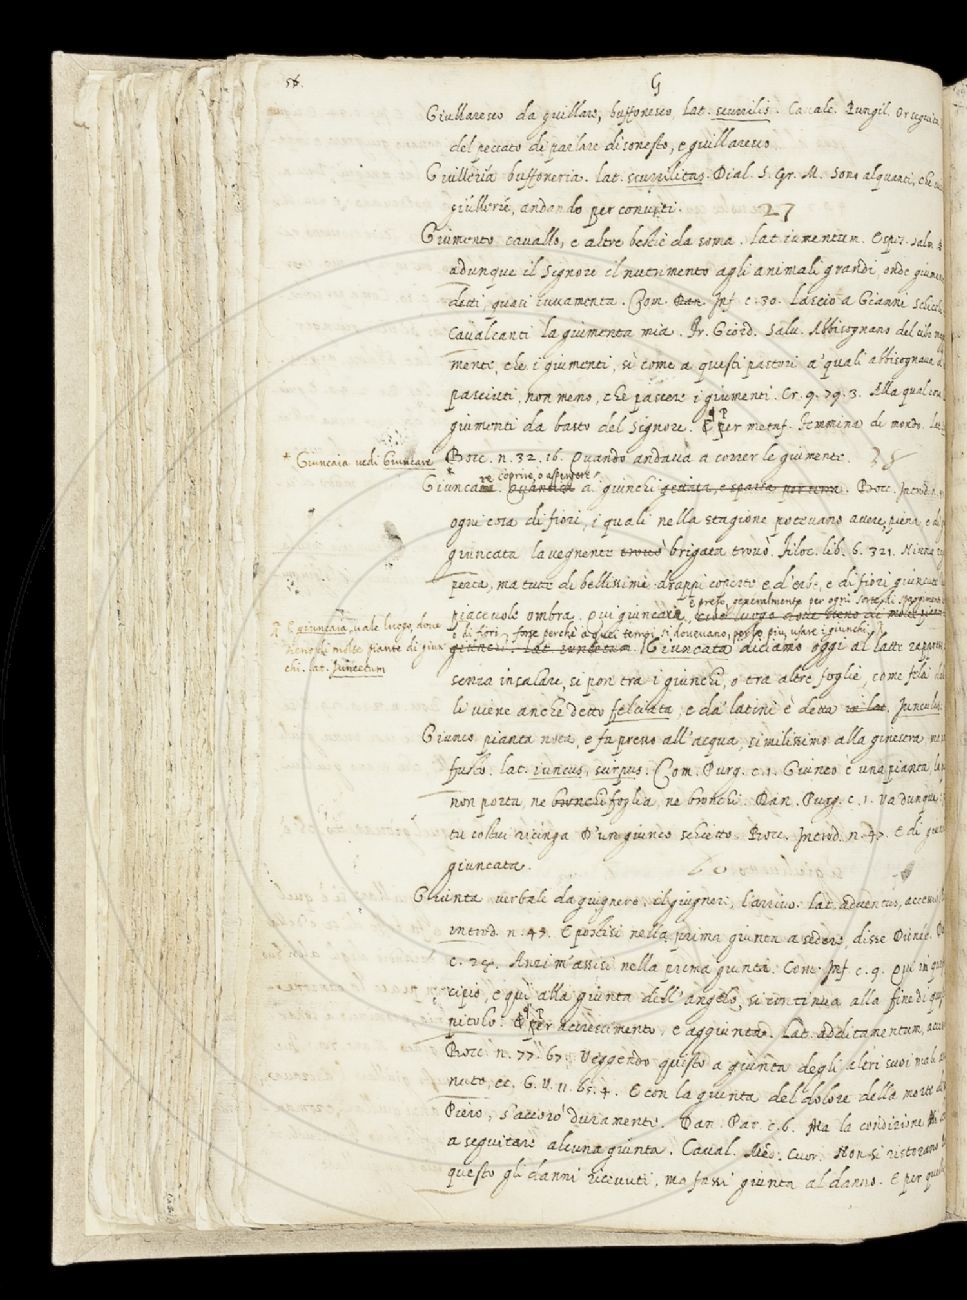 58.
G
Giullaresco da giullare, buffonesco, lat. scurrilis. Cavalc. Pungil.
del peccato di parlare disonesto, e giullaresco
Giulleria buffoneria. lat. scurrilitas. Dial. S. Gr. M. Sono alquanti, che
giullerie, andando per conviti. 27
Giumento cavallo, e altre bestie da soma. lat. iumentum. Espos. Salm.
adunque il Signore il nutrimento agli animali grandi, onde
detti quasi iuvamenta. Com. Dan. Inf. c. 30. lascio a Gianni
Cavalcanti la giumenta mia. Fr. Giord. Salv. Abbisognano del cibo
mente, che i giumenti, sì come a questi pastori a' quali abbisognava
pasciuti, non meno, che pascere i giumenti. Cr. 9. 79. 3. Alla qual
giumenti da basto del Signore. ¶ E per metaf. Femmina di mondo.
* Giuncaia vedi Giuncare
Bocc. n. 32. 16. Quando andava a correr le giumente. 28
coprire, o aspergere
Giuncare. a giunchi . Bocc. Introd.
ogni cosa di fiori, i quali nella stagione potevano avere, piena, e di
giuncata la vegnente trovò brigata trovò. Filoc. lib. 6. 321.
ma tutte di bellissimi drappi coperte e d'erbe, e di fiori giuncate
è preso, generalmente per ogni sorte di
piacevole ombra. Qui giuncata, cioè luogo dove sieno di molte
R E giuncaia, vale luogo, dove
e di fiori, forse perchè a quei tempi si dovevano, più usare i giunchi
sieno di molte piante di giun
giunchi. lat. iuncetum. Giuncata diciamo oggi al latte
chi. lat. Juncetum
senza insalare, si pon tra i giunchi, o tra altre foglie, come felci
li viene anche detto felciata, e da' latini è detta in lat.
Giunco pianta nota, e fa presso all'acqua, similissimo alla ginestra
fusto. lat. iuncus, scirpus. Com. Purg. c. 1. Giunco è una pianta
non porta, nè bronchi foglia, nè bronchi. Dan. Purg. c. 1. Va dunque
tu costui ricinga D'un giunco schietto. Bocc. Introd. n. 47. E di
giuncata.
Giunta verbale da giugnere, il giugnere, l'arrivo. lat. adventus,
introd. n. 47. E postisi nella prima giunta a sedere, disse Dioneo.
c. 24. Anzi m'assisi nella prima giunta. Com. Inf. c. 9. Qui in
cipio, e qui alla giunta dell'angelo, si continua alla fine di
pitolo. ¶ E per accrescimento, e aggiunta. Lat. additamentum,
Bocc. n. 77. 67. Veggendo questo a giunta degli altri suoi mali
nuto, ec. G. V. 11. 65. 4. E con la giunta del dolore della morte
Piero, s'accorò duramente. Dan. Par. c. 6. Ma la condizione
a seguitare alcuna giunta. Caval. Med. Cuor. Non si ristorano
questo gli danni ricevuti, ma fassi giunta al danno. E per